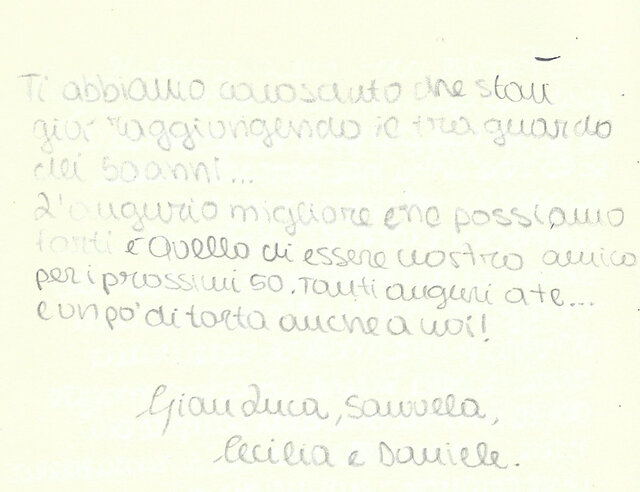 Ti abbiamo conosciuto che stavi
già raggiungendo il traguardo
dei 50 anni...
L'augurio migliore che possiamo
farti è quello di essere nostro amico
per i prossimi 50. Tanti auguri a te...
e un po' di torta anche a noi!
Gianluca, Samuela,
Cecilia e Daniele.